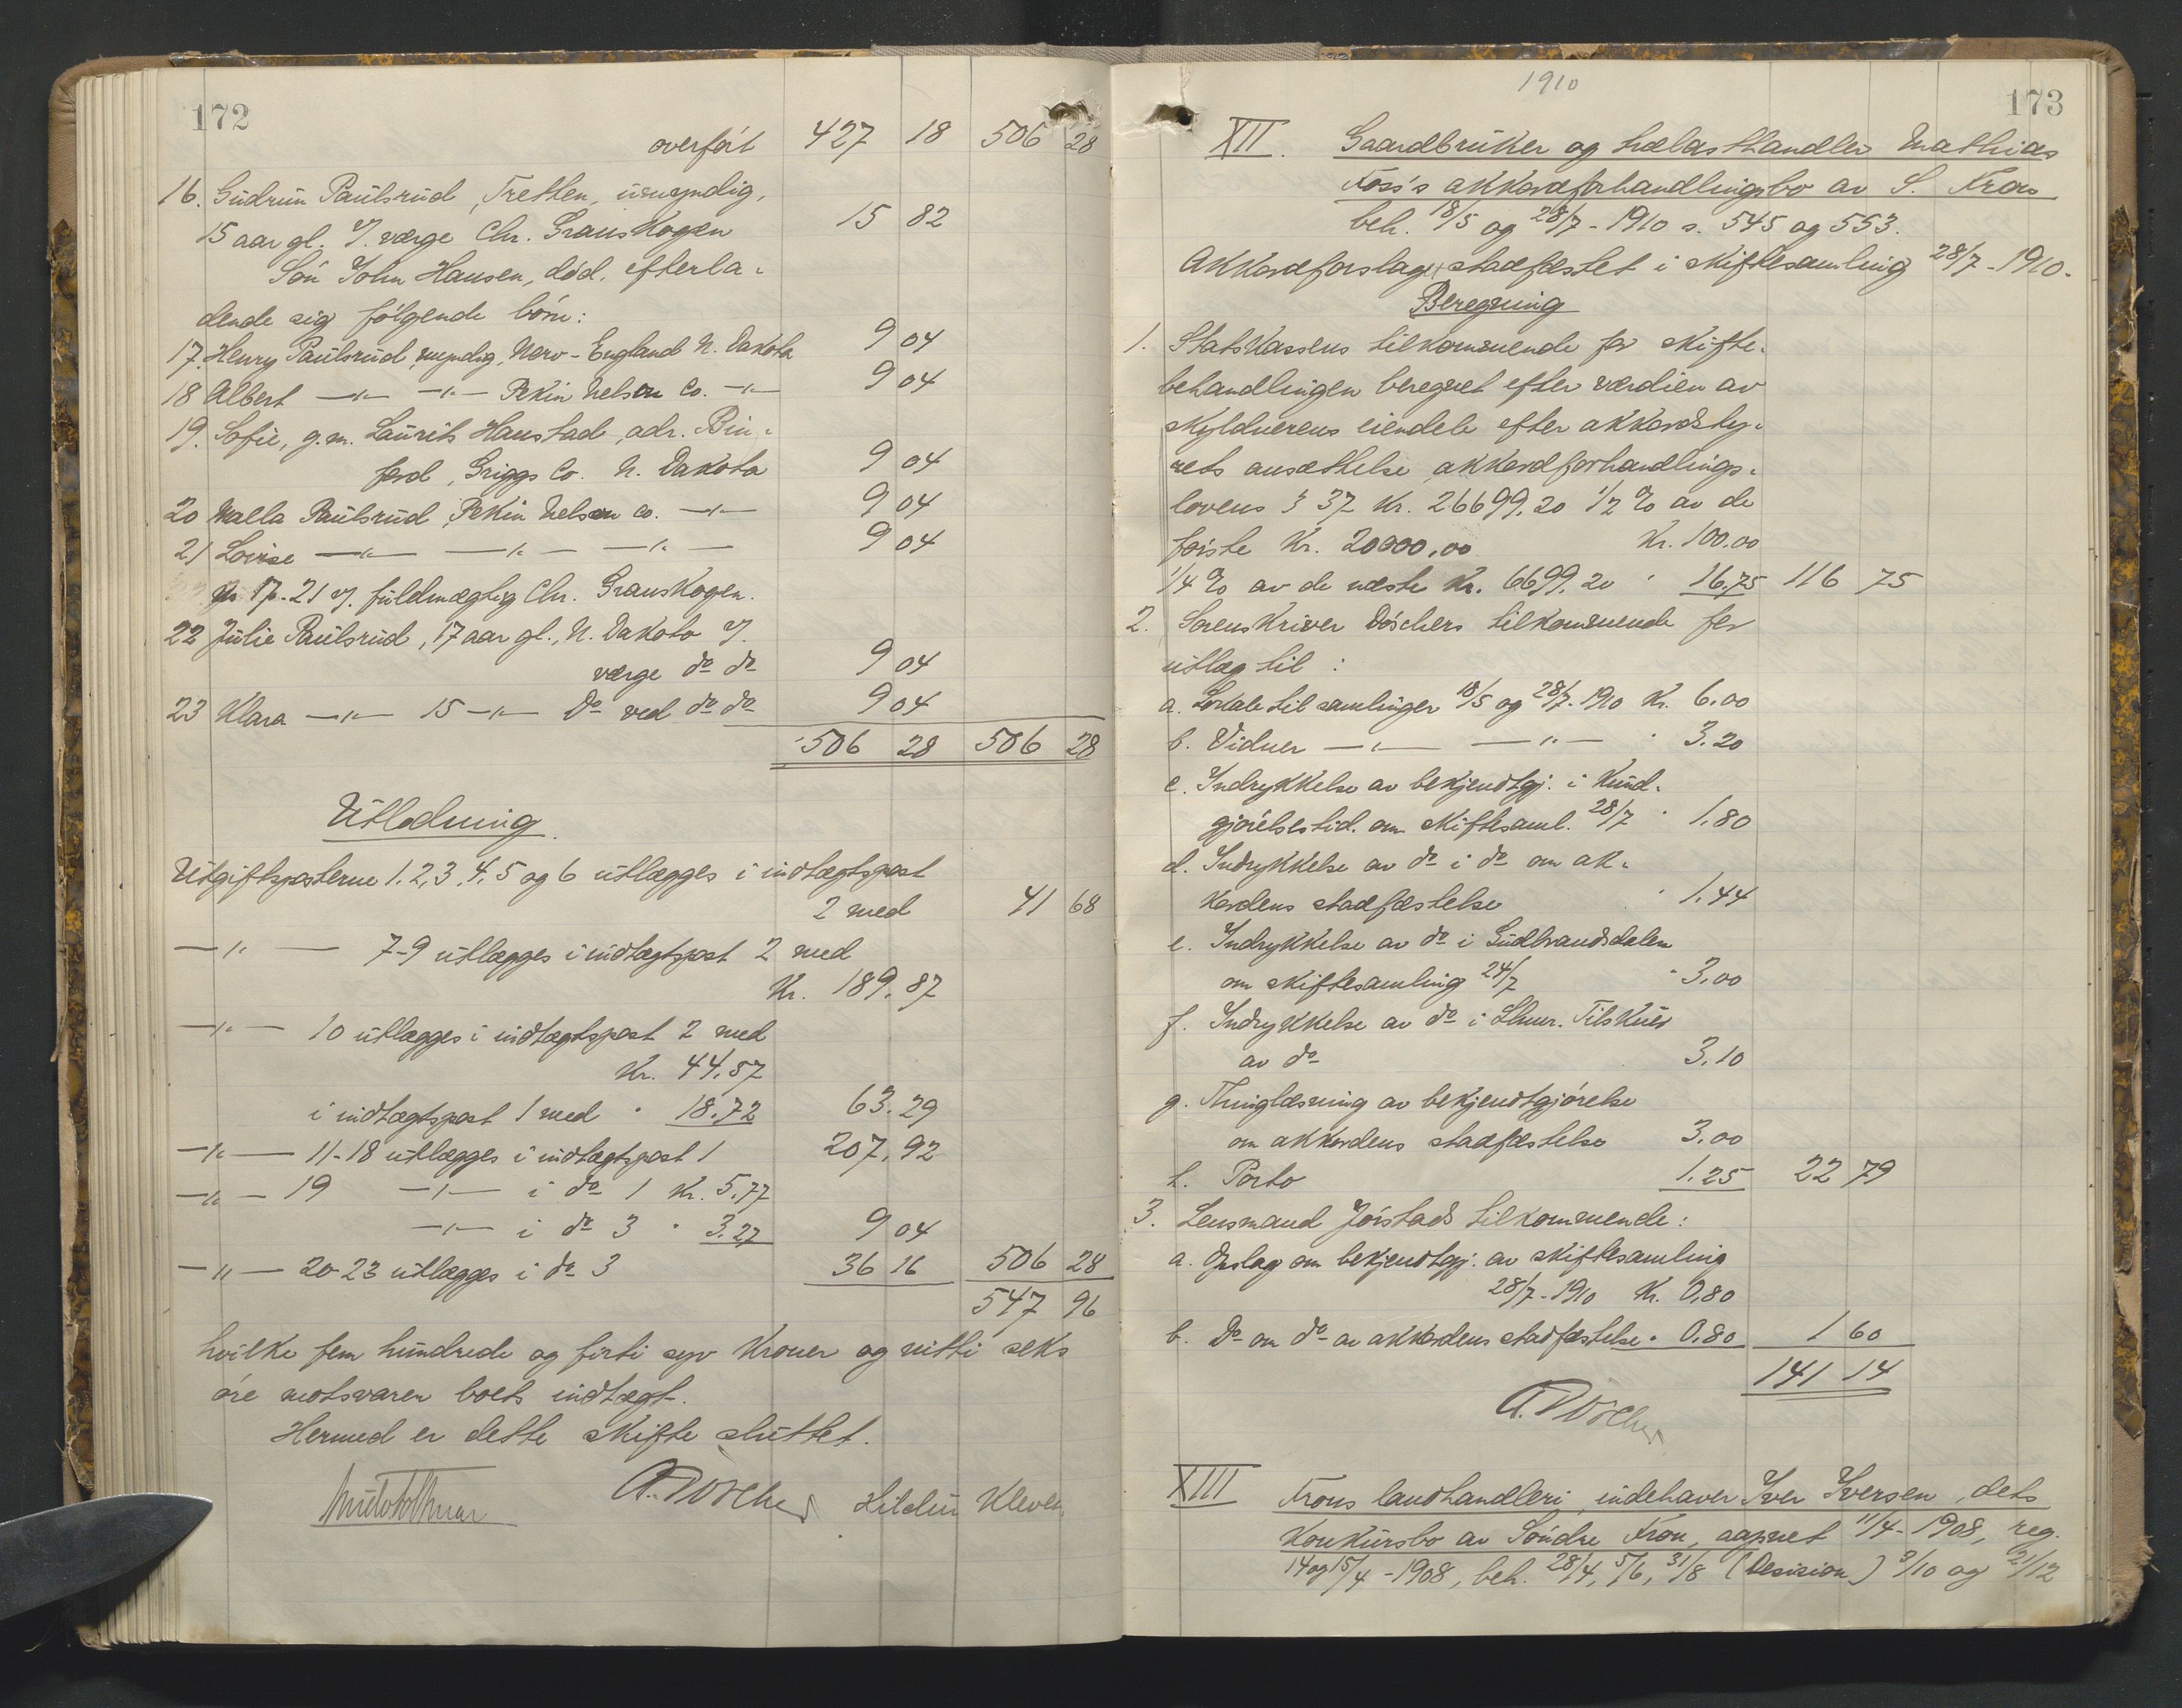 172
overført 427 18 506 28
16. Gudrun Paulsrud, Tretten, umyndig,
15 aar gl. V. værge Chr. Granskogen 15 82
Søn John Hansen, død, efterla-
dende sig følgende børn:
17. Henry Paulsrud, myndig, New-England N. Dakota 9 04
18 Albert —"— —"— Pekin Nelson Co. —"— 9 04
19. Sofie, g.m. Laurits Haustad, adr. Bin-
ford, Griggs Co. N. Dakota 9 04
20 Malla Paulsrud, Pekin Nelson co. —"— 9 04
21 Lovise —"— —"— —"— 9 04
Nr 17-21 v. fuldmægtig Chr. Granskogen.
22 Julie Paulsrud, 17 aar gl., N. Dakota V.
værge do do 9 04
23 Klara —"— 15 —"— Do ved do do 9 04
506 28 506 28
Utlodning
Utgiftsposterne 1, 2, 3, 4, 5 og 6 utlægges i indtægtspost
2 med 41 68
—"— 7-9 utlægges i indtægtspost 2 med
Kr. 189.87
—"— 10 utlægges i indtægtspost 2 med
Kr. 44.57
i indtægtspost 1 med " 18.72 63.29
—"— 11-18 utlægges i indtægtspost 1 207,92
—"— 19 —"— i do 1 Kr. 5,77
—"— i do 3 " 3.27 9 04
—"— 20-23 utlægges i do 3 36 16 506 28
547 96
hvilke fem hundrede og firti syv Kroner og nitti seks
øre motsvarer boets indtægt.
Hermed er dette skifte sluttet.
A. Døscher Hildur Kleven
1910
173
XII. Gaardbruker og hælasthandler Mathias
Foss's akkordforhandlingsbo av S. Fron
beh. 18/5 og 28/7-1910 s. 545 og 553.
Akkordforslaget stadfæstet i skiftesamling 28/7-1910.
Beregning
1. Statskassens tilkommende for skifte-
behandlingen beregnet efter værdien av
skyldnerens eiendele efter akkordsty-
rets ansættelse, akkordforhandlings-
lovens § 37 Kr. 26699.20 1/2 % av de
første Kr. 20000,00 Kr. 100.00
1/4 % av de næste Kr. 6699,20 " 16.75 116 75
2. Sorenskriver Døschers tilkommende for
utlæg til:
a. Lokale til samlinger 18/5 og 28/7-1910 Kr. 6.00
b. Vidner —"— —"— " 3.20
c. Indrykkelse av bekjendtgj. i Kund-
gjørelsestid. om skiftesaml. 28/7 " 1.80
d. Indrykkelse av do i do om ak-
kordens stadfæstelse " 1.44
e. Indrykkelse av do i Gudbrandsdølen
om skiftesamling 24/7 " 3,00
f. Indrykkelse av do i Lhmr. Tilskuer
av do 3.10
g. Thinglæsning av bekjendtgjørelse
om akkordens stadfæstelse 3.00
h. Porto 1.25 22 79
3. Lensmand Jørstads tilkommende:
a. Opslag om bekjendtgj. av skiftesamling
28/7-1910 Kr. 0,80
b. Do om do av akkordens stadfæstelse " 0.80 1 60
141 14
A. Døscher
XIII Frons landhandleri, indehaver Iver Iversen, dets
Konkursbo av Søndre Fron, aapnet 11/4-1908, reg.
14 og 15/4-1908, beh. 28/4, 5/6, 31/8 (Desision) 9/10 og 21/12